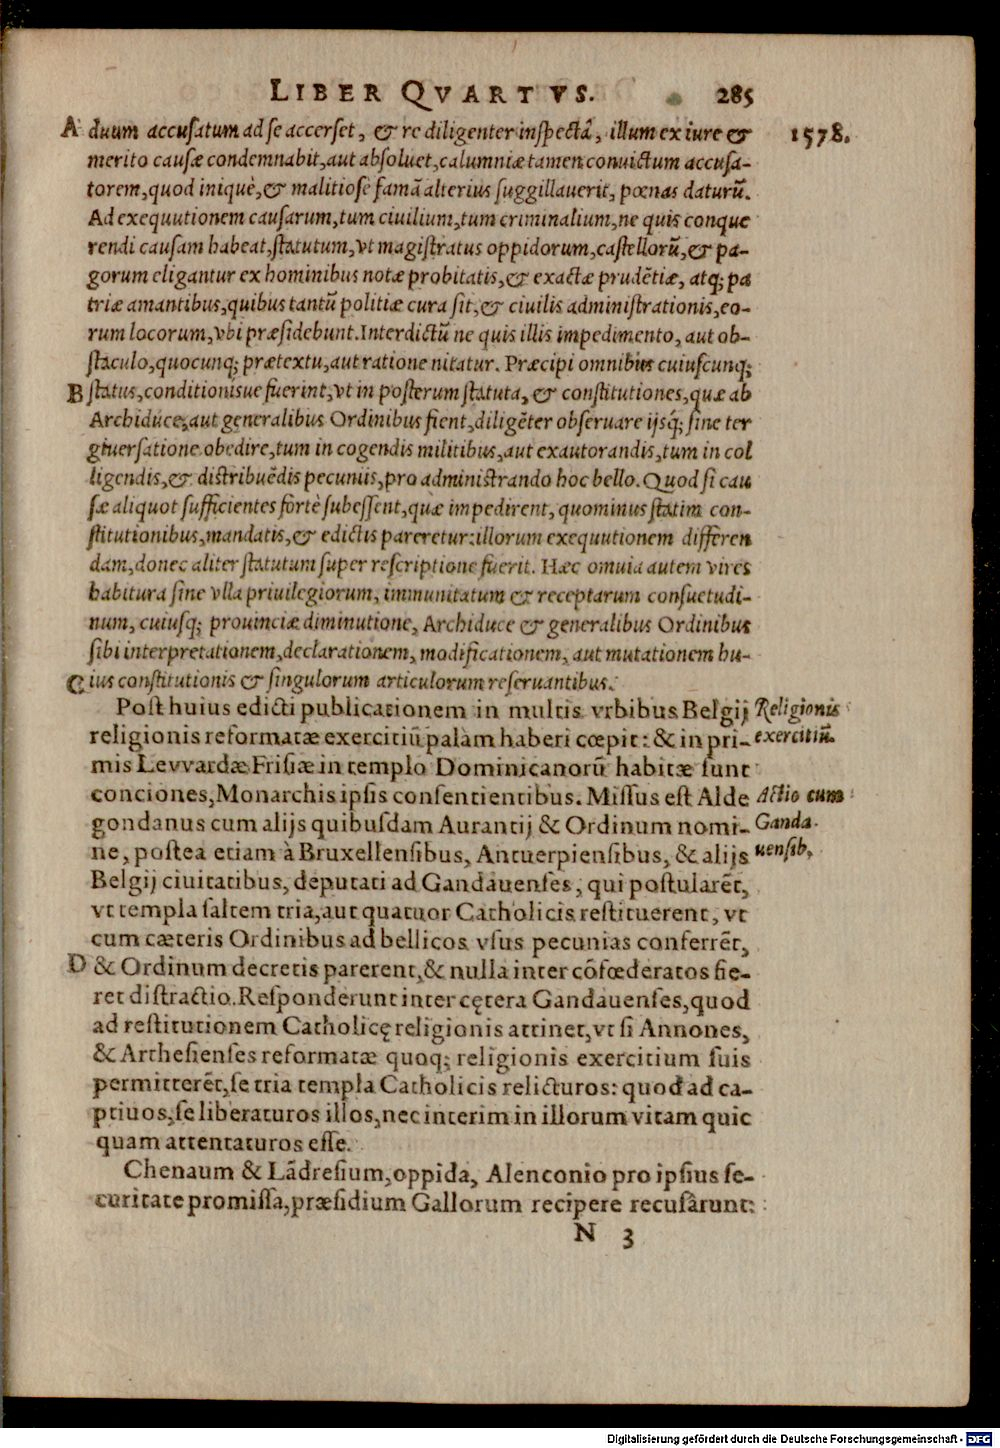 LIBER QVARTVS. 285
A duum accusatum ad se accerset, & re diligenter inspectâ, illum ex iure & 1578.
merito causæ condemnabit, aut absoluet, calumniæ tamen conuictum accusa-
torem, quod iniquè, & malitiosè famã alterius suggillauerit, pœnas daturũ.
Ad exequutionem causarum, tum ciuilium, tum criminalium, ne quis conque
rendi causam habeat, statutum, vt magistratus oppidorum, castellorũ, & pa-
gorum eligantur ex hominibus notæ probitatis, & exactæ prudẽtiæ, atq; pa
triæ amantibus, quibus tantũ politiæ cura sit, & ciuilis administrationis, eo-
rum locorum, vbi præsidebunt. Interdictũ ne quis illis impedimento, aut ob-
staculo, quocunq; prætextu, aut ratione nitatur. Præcipi omnibus cuiuscunq;
B status, conditionisue fuerint, vt in posterum statuta, & constitutiones, quæ ab
Archiduce, aut generalibus Ordinibus fient, diligẽter obseruare ijsq́; sine ter
giuersatione obedire, tum in cogendis militibus, aut exautorandis, tum in col
ligendis, & distribuẽdis pecuniis, pro administrando hoc bello. Quod si cau
sæ aliquot sufficientes fortè subessent, quæ impedirent, quominus statim con-
stitutionibus, mandatis, & edictis pareretur: illorum exequutionem differen
dam, donec aliter statutum super rescriptione fuerit. Hæc omnia autem vires
habitura sine vlla priuilegiorum, immunitatum & receptarum consuetudi-
num, cuiusq; prouinciæ diminutione, Archiduce & generalibus Ordinibus
sibi interpretationem, declarationem, modificationem, aut mutationem hu-
C ius constitutionis & singulorum articulorum reseruantibus.
Post huius edicti publicationem in multis vrbibus Belgij Religionis
religionis reformatæ exercitiũ palàm haberi cœpit: & in pri- exercitiũ.
mis Levvardæ Frisiæ in templo Dominicanorũ habitæ sunt
conciones, Monarchis ipsis consentientibus. Missus est Alde Actio cum
gondanus cum alijs quibusdam Aurantij & Ordinum nomi- Ganda-
ne, postea etiam à Bruxellensibus, Antuerpiensibus, & alijs uensib.
Belgij ciuitatibus, deputati ad Gandauenses, qui postularẽt,
vt templa saltem tria, aut quatuor Catholicis restituerent, vt
cum cæteris Ordinibus ad bellicos vsus pecunias conferrẽt,
D & Ordinum decretis parerent, & nulla inter cõfœderatos fie-
ret distractio. Responderunt inter cętera Gandauenses, quod
ad restitutionem Catholicę religionis attinet, vt si Annones,
& Arthesienses reformatæ quoq; religionis exercitium suis
permitterẽt, se tria templa Catholicis relicturos: quod ad ca-
ptiuos, se liberaturos illos, nec interim in illorum vitam quic
quam attentaturos esse.
Chenaum & Lãdresium, oppida, Alenconio pro ipsius se-
curitate promissa, præsidium Gallorum recipere recusârunt:
N 3
Digitalisierung gefördert durch die Deutsche Forschungsgemeinschaft - DFG